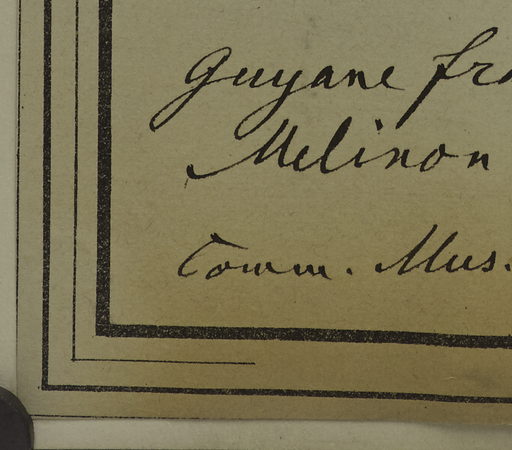 Guyane fra
Melinon
Comm. Mus.